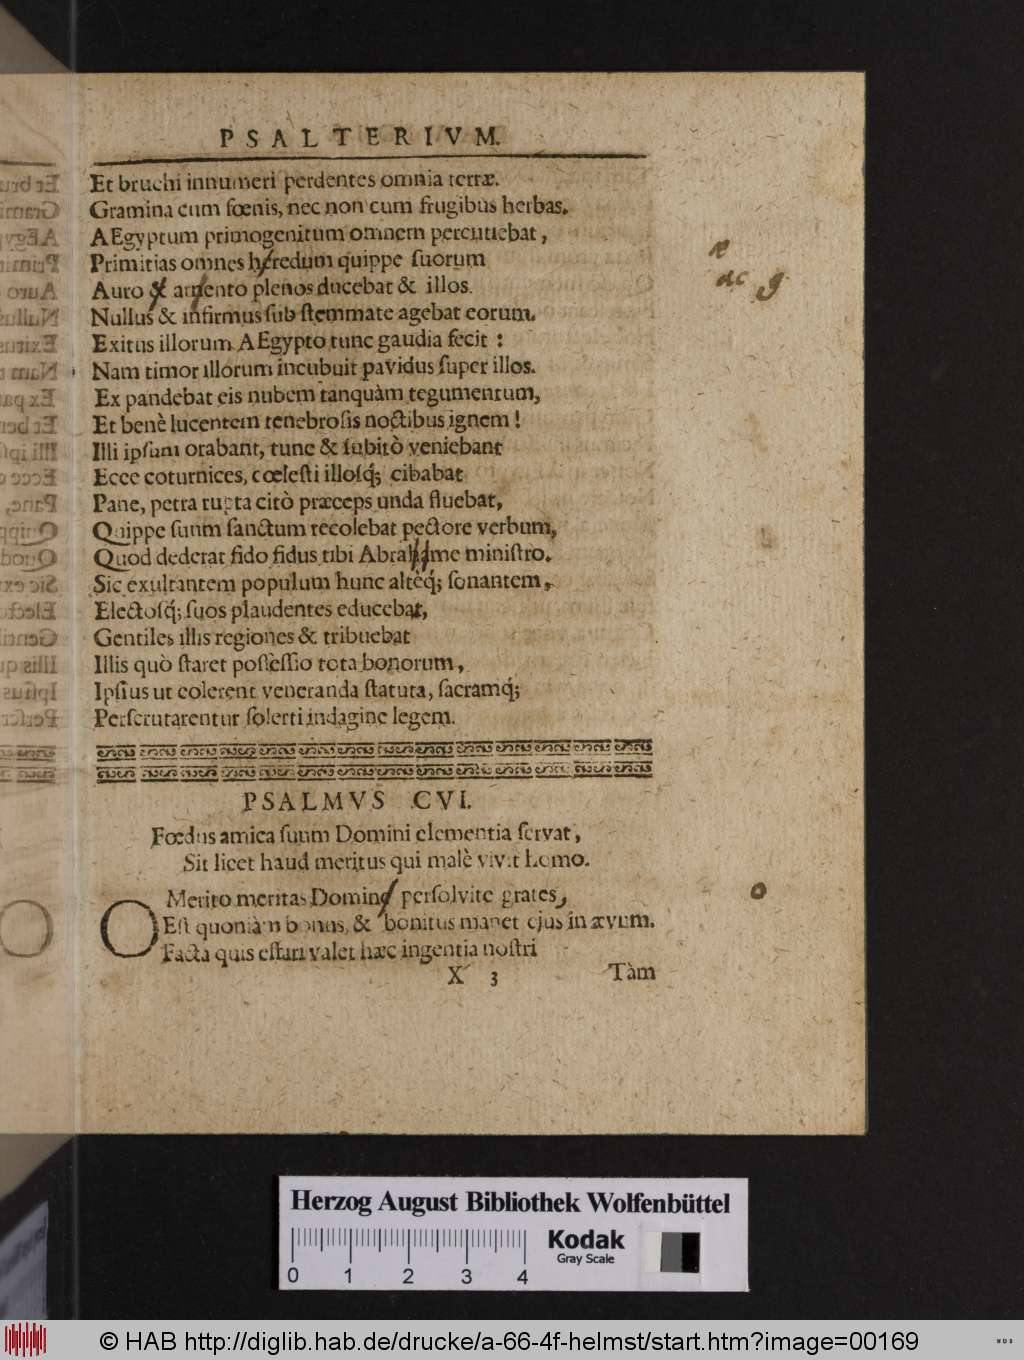 PSALTERIVM.
Et bruchi innumeri perdentes omnia terræ.
Gramina cum fœnis, nec non cum frugibus herbas.
AEgyptum primogenitum omnem percutiebat,
Primitias omnes heredum quippe ſuorum
æ
Auro & argento plenos ducebat & illos.
ac g
Nullus & infirmus ſub ſtemmate agebat eorum.
Exitus illorum AEgypto tunc gaudia fecit :
Nam timor illorum incubuit pavidus ſuper illos.
Ex pandebat eis nubem tanquàm tegumentum,
Et benè lucentem tenebroſis noctibus ignem!
Illi ipſum orabant, tunc & ſubitò veniebant
Ecce coturnices, cœleſti illoſq́; cibabat
Pane, petra rupta citò præceps unda fluebat,
Quippe ſuum ſanctum recolebat pectore verbum,
Quod dederat fido fidus tibi Abrahame miniſtro.
Sic exultantem populum hunc altèq́; ſonantem,
Electoſq́; ſuos plaudentes educebat,
Gentiles illis regiones & tribuebat
Illis quò ſtaret poſſeſſio tota bonorum,
Ipſius ut colerent veneranda ſtatuta, ſacramq́;
Perſcrutarentur ſolerti indagine legem.
PSALMVS CVI.
Fœdus amica ſuum Domini clementia ſervat,
Sit licet haud meritus qui malè vivit homo.
O Merito meritas Domine perſolvite grates,
o
Eſt quoniàm bonus, & bonitus manet ejus in ævum.
Facta quis effari valet hæc ingentia noſtri
X 3 Tàm
Herzog August Bibliothek Wolfenbüttel
0 1 2 3 4
Kodak
Gray Scale
© HAB http://diglib.hab.de/drucke/a-66-4f-helmst/start.htm?image=00169